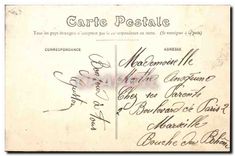 Carte Postale
Tous les pays étrangers n'acceptent pas la correspondance au recto. (Se renseigner à la Poste)
CORRESPONDANCE
ADRESSE
Bonjour de tous
Mademoiselle
Chez ses Parents
Boulevard de Paris 2
Marseille
Bouche du Rhône